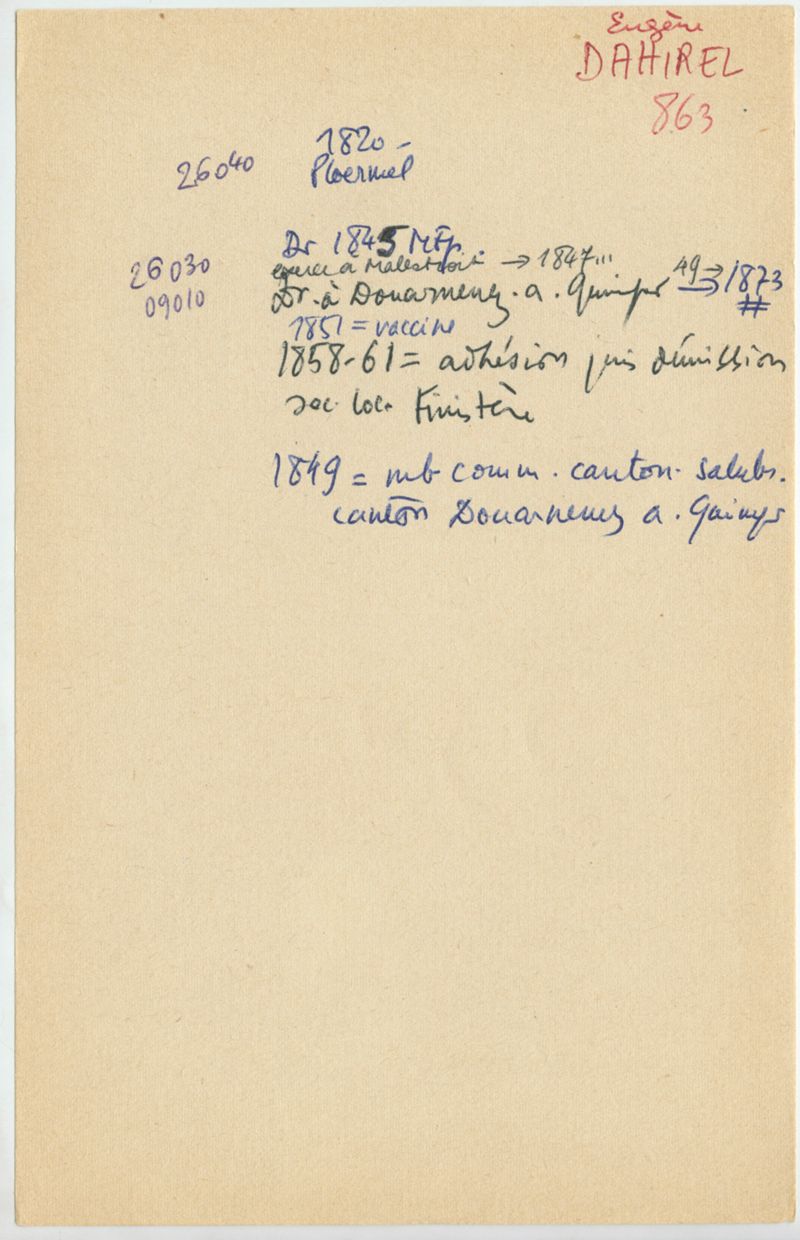 Eugène
DAHIREL
863
1820 -
26040 Ploermel
Dr 1845 MFP.
26030 exerce à Malestroit → 1847...
09010 Dr. à Douarnenez. a. Quimper 49 → 1873
#
1851 = vaccine
1858-61 = adhésion puis démission
soc. loc. Finistère
1849 = mb comm. canton. salub.
canton Douarnenez a. Quimper